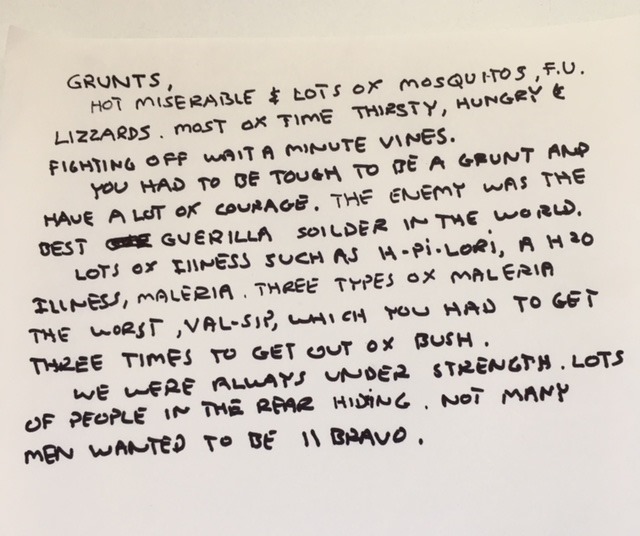 GRUNTS,
HOT MISERABLE & LOTS OX MOSQUITOS, F.U.
LIZZARDS. MOST OX TIME THIRSTY, HUNGRY &
FIGHTING OFF WAIT A MINUTE VINES.
YOU HAD TO BE TOUGH TO BE A GRUNT AND
HAVE A LOT OX COURAGE. THE ENEMY WAS THE
BEST GUERILLA SOILDER IN THE WORLD.
LOTS OX ILLNESS SUCH AS H-Pi-LORi, A H20
ILLNESS, MALERIA. THREE TYPES OX MALERIA
THE WORST, VAL-SIP, WHICH YOU HAD TO GET
THREE TIMES TO GET OUT OX BUSH.
WE WERE ALWAYS UNDER STRENGTH. LOTS
OF PEOPLE IN THE REAR HIDING. NOT MANY
MEN WANTED TO BE 11 BRAVO.